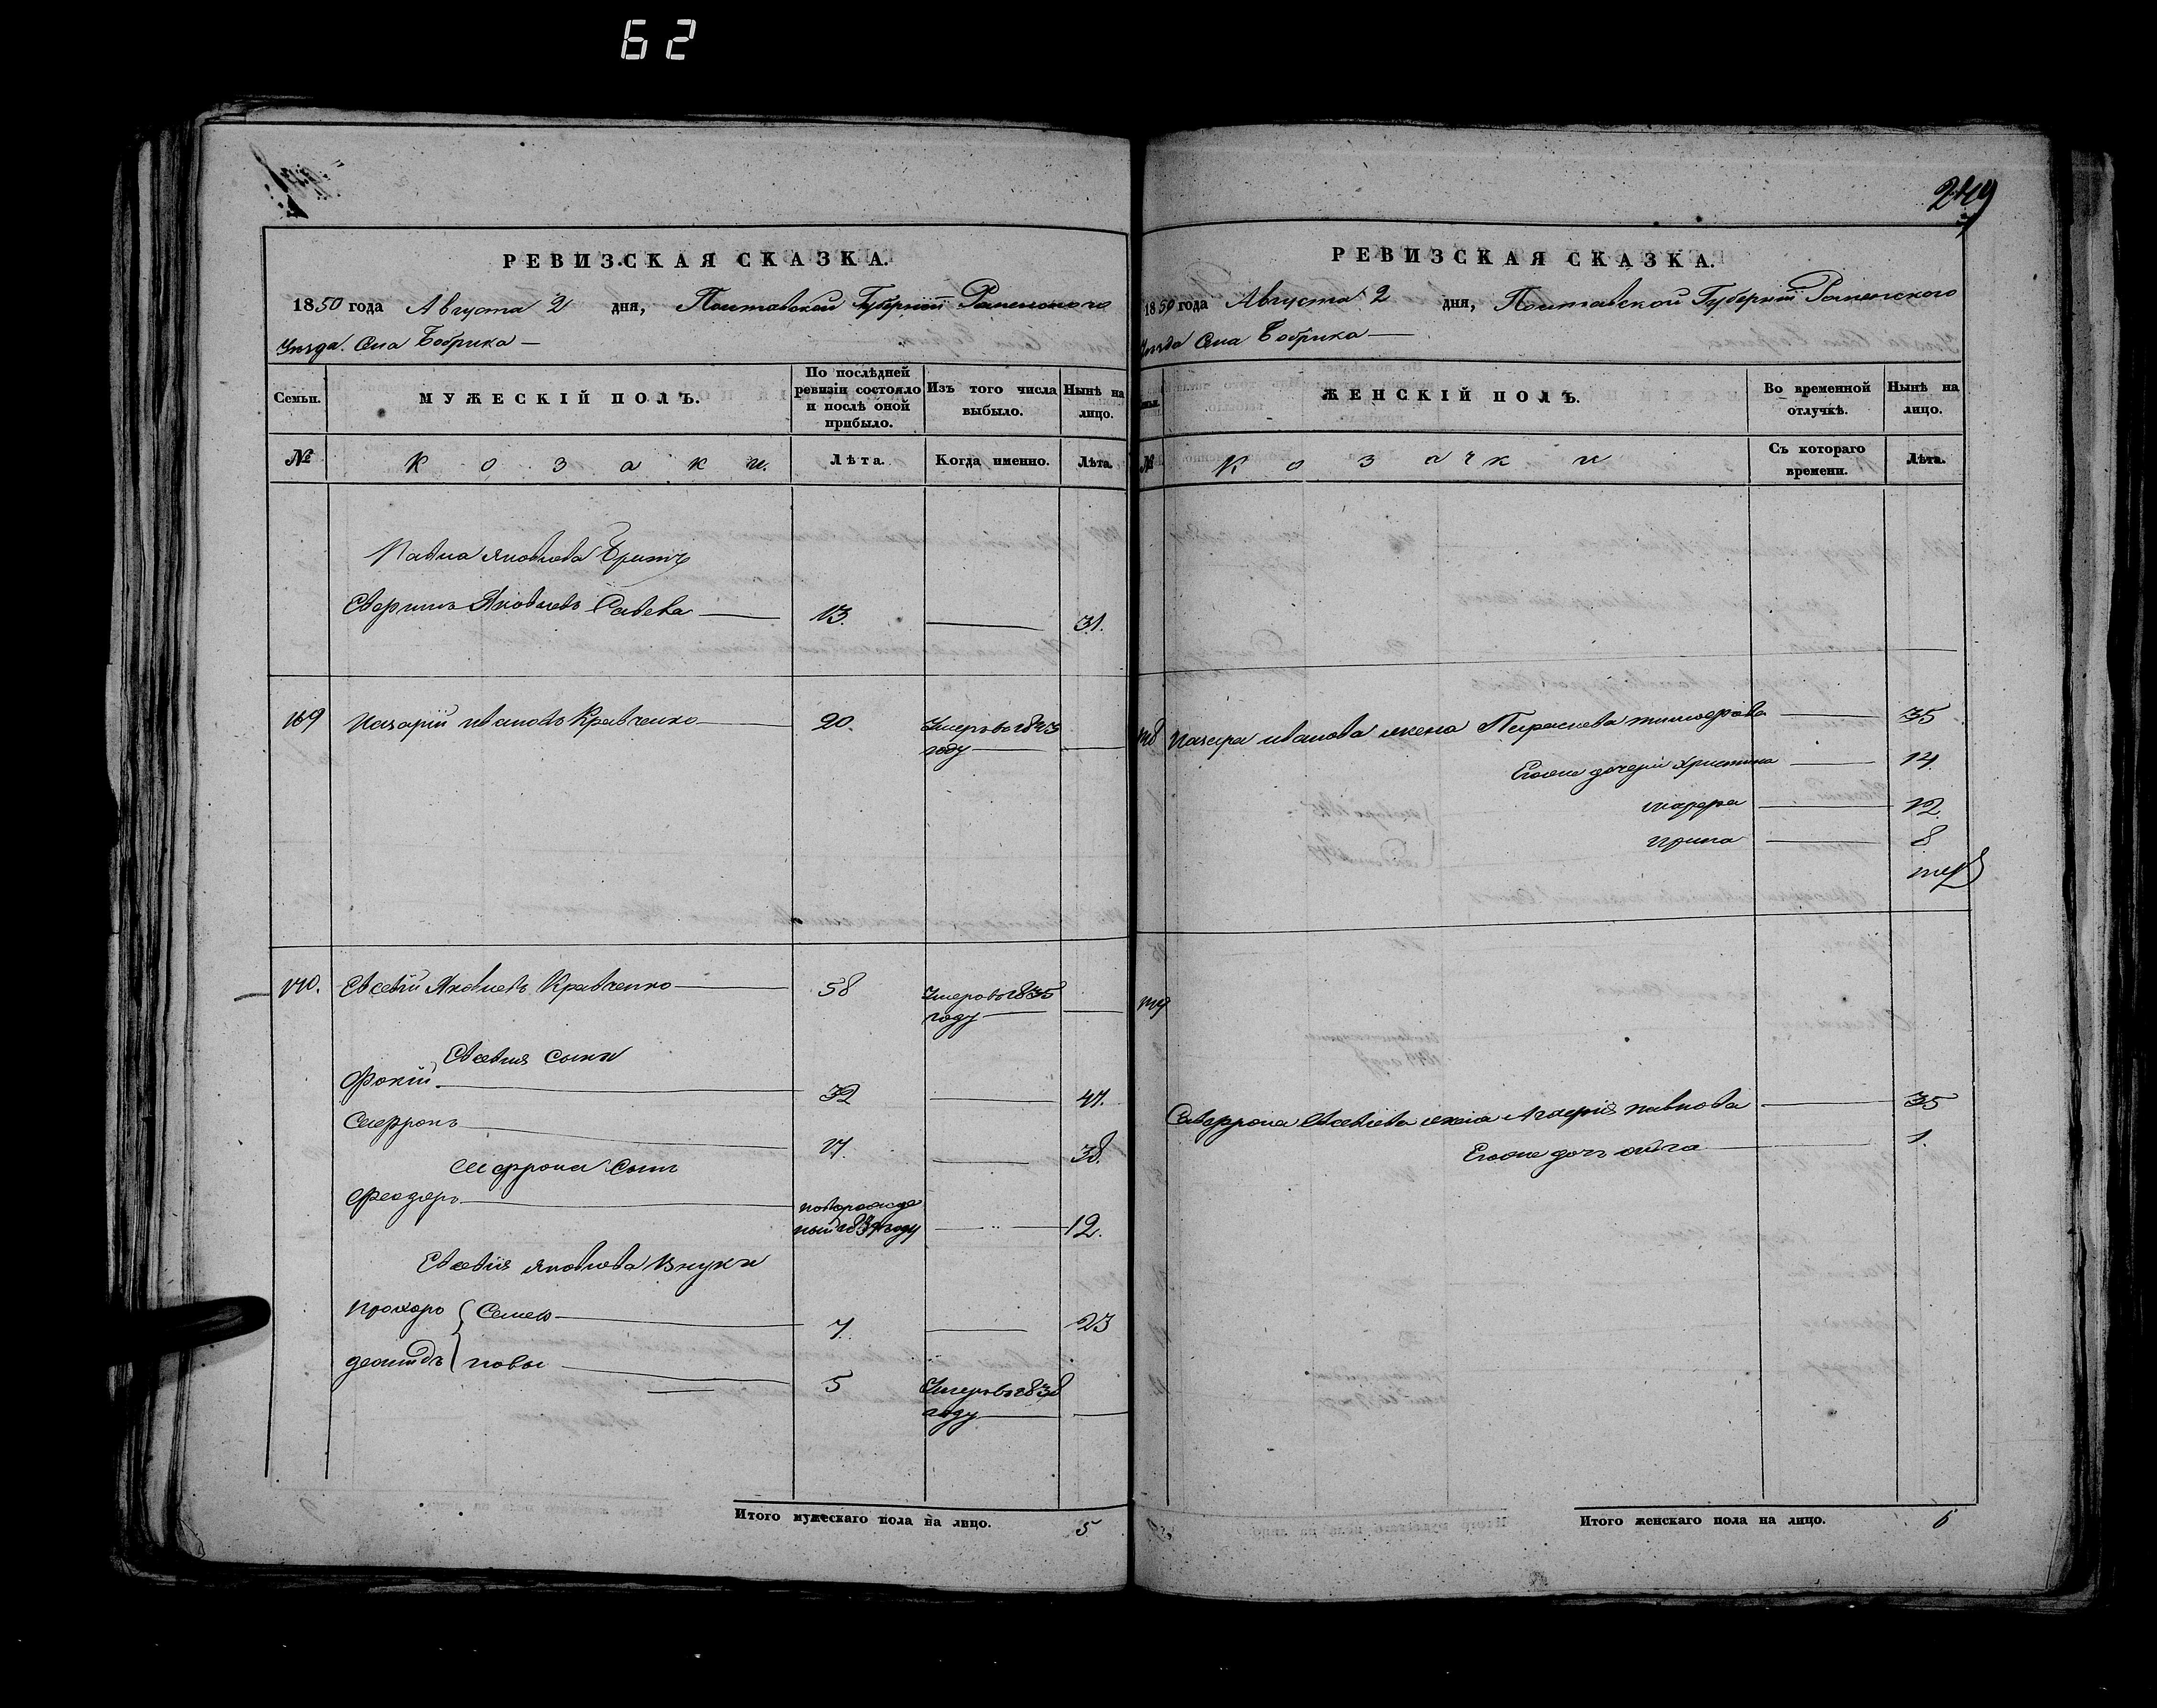 62
249
РЕВИЗСКАЯ СКАЗКА.
1850 года Августа 2 дня, Полтавской Губернии Роменского
Уезда. Села Бобрика —
Семьи.
МУЖЕСКІЙ ПОЛЪ.
По послѣдней ревизіи состояло и послѣ оной прибыло.
Изъ того числа выбыло.
Нынѣ на лицо.
№
Козаки.
Лѣта.
Когда именно.
Лѣта.
Павла Яковлева
Яковлевъ Савева 13. 31.
169 Назарій Ивановъ Кравченко 20. Умеръ въ 1843
году
170. Евсевій Яковлевъ Кравченко 58 Умеръ въ 1835
году
Евсевия сыны
Фокій 32 47.
38.
сынъ
Феодоръ новорожде
ный 12.
Евсевія Яковлева внуки
Прохоръ Семе 7. 23
новы 5 Умеръ въ 1838
году
Итого мужескаго пола на лицо. 5
РЕВИЗСКАЯ СКАЗКА.
1850 года Августа 2 дня, Полтавской Губернии Роменского
Уезда Села Бобрика —
Семьи.
ЖЕНСКІЙ ПОЛЪ.
Во временной отлучкѣ.
Нынѣ на лицо.
№
Козачки
Съ котораго времени.
Лѣта.
Назара Иванова жена 35
Егоже дочери Христина 14.
Марфа 12.
Ирина 8
Евсевіева жена павлова 35
Егоже дочь 1.
Итого женскаго пола на лицо. 6